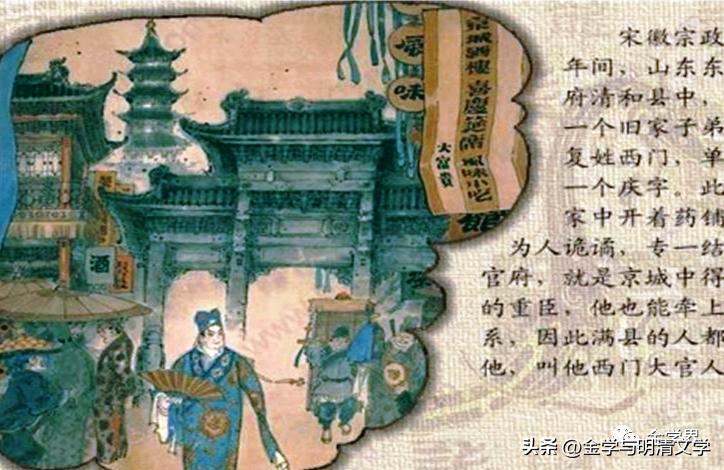 味
喜慶筵席
風味小吃
大富贵
館
酒
宋徽宗政
年间，山东东
府清和县中，
一个旧家子弟
复姓西门，单
一个庆字。此
家中开着药铺
为人诡谲，专一结
官府，就是京城中得
的重臣，他也能牵上
系，因此满县的人都
他，叫他西门大官人
金学界
头条 @金学与明清文学